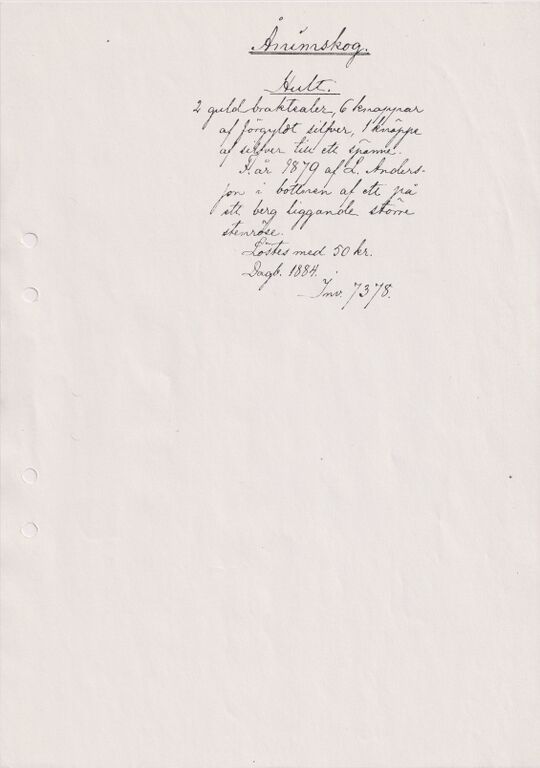 Ånimskog.
Hult.
2 guld brakteater, 6 knappar
af förgyldt silfver, 1 knäppe
af silfver till ett spänne.
F. år 1879 af L. Anders-
son i bottnen af ett på
ett berg liggande större
stenröse.
Löstes med 50 kr.
Dagb. 1884.
Inv. 7378.